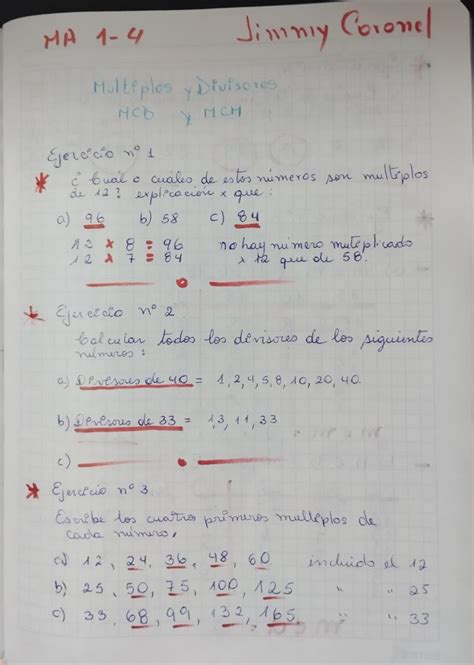 MA 1-4 Jimmy Coronel
Multiplos y Divisores
MCD y MCM
Ejercicio nº 1
* ¿ Cual o cuáles de estos números son multiplos
de 12? explicación x que :
a) 96 b) 58 c) 84
12 x 8 = 96 no hay número multiplicado
12 x 7 = 84 x 12 que de 58.
Ejercicio nº 2
Calcular todos los divisores de los siguientes
números :
a) Divisores de 40 = 1, 2, 4, 5, 8, 10, 20, 40
b) Divisores de 33 = 1,3, 11, 33
c)
* Ejercicio nº 3
Escribe los cuatro primeros multiplos de
cada número.
a) 12, 24, 36, 48, 60 incluido el 12
b) 25, 50, 75, 100, 125 " " 25
c) 33, 68, 99, 132, 165. " " 33